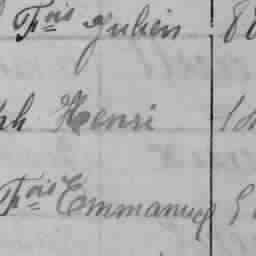 Fois Julien 8
ph Henri 1
Fois Emmanuel 9